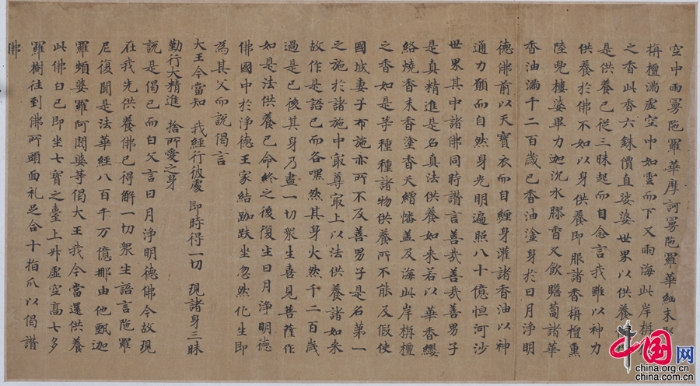 空中雨曼陀羅華摩訶曼陀羅華細末
栴檀滿虛空中如雲而下又雨海此岸栴檀
之香此香六銖價直娑婆世界以供養
是供養已從三昧起而自念言我雖以神力
供養於佛不如以身供養即服諸香栴檀薰
陸兜樓婆畢力迦沉水膠香又飲瞻蔔諸華
香油滿千二百歲已香油塗身於日月淨明
德佛前以天寶衣而自纏身灌諸香油以神
通力願而自然身光明遍照八十億恒河沙
世界其中諸佛同時讚言善哉善哉善男子
是真精進是名真法供養如來若以華香瓔
珞燒香末香塗香天繒幡蓋及海此岸栴檀
之香如是等種種諸物供養所不能及假使
國城妻子布施亦所不及善男子是名第
之施於諸施中最尊最上以法供養諸如來
故作是語已而各默然其身火然千二百歲
過是已後其身乃盡一切眾生喜見菩薩作
如是法供養已命終之後復生日月淨明德
佛國中於淨德王家結跏趺坐忽然化生即
為其父而說偈言
大王今當知 我經行彼處 即時得一切 現諸身三昧
勤行大精進 捨所愛之身
說是偈已而白父言日月淨明德佛今故現
在我先供養佛已得解一切眾生語言陀羅
尼復聞是法華經八百千万億那由他甄迦
羅頻婆羅阿閦婆等偈大王我今當還供養
此佛白已即坐七寶之臺上昇虛空高七多
羅樹往到佛所頭面礼足合十指爪以偈讚
佛
中国网
www.china.org.cn
www.china.com.cn